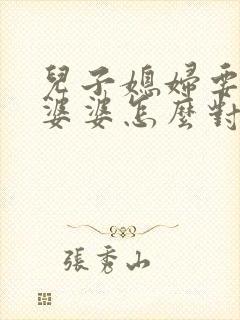 兒子媳婦要
婆婆怎麼對
張秀山